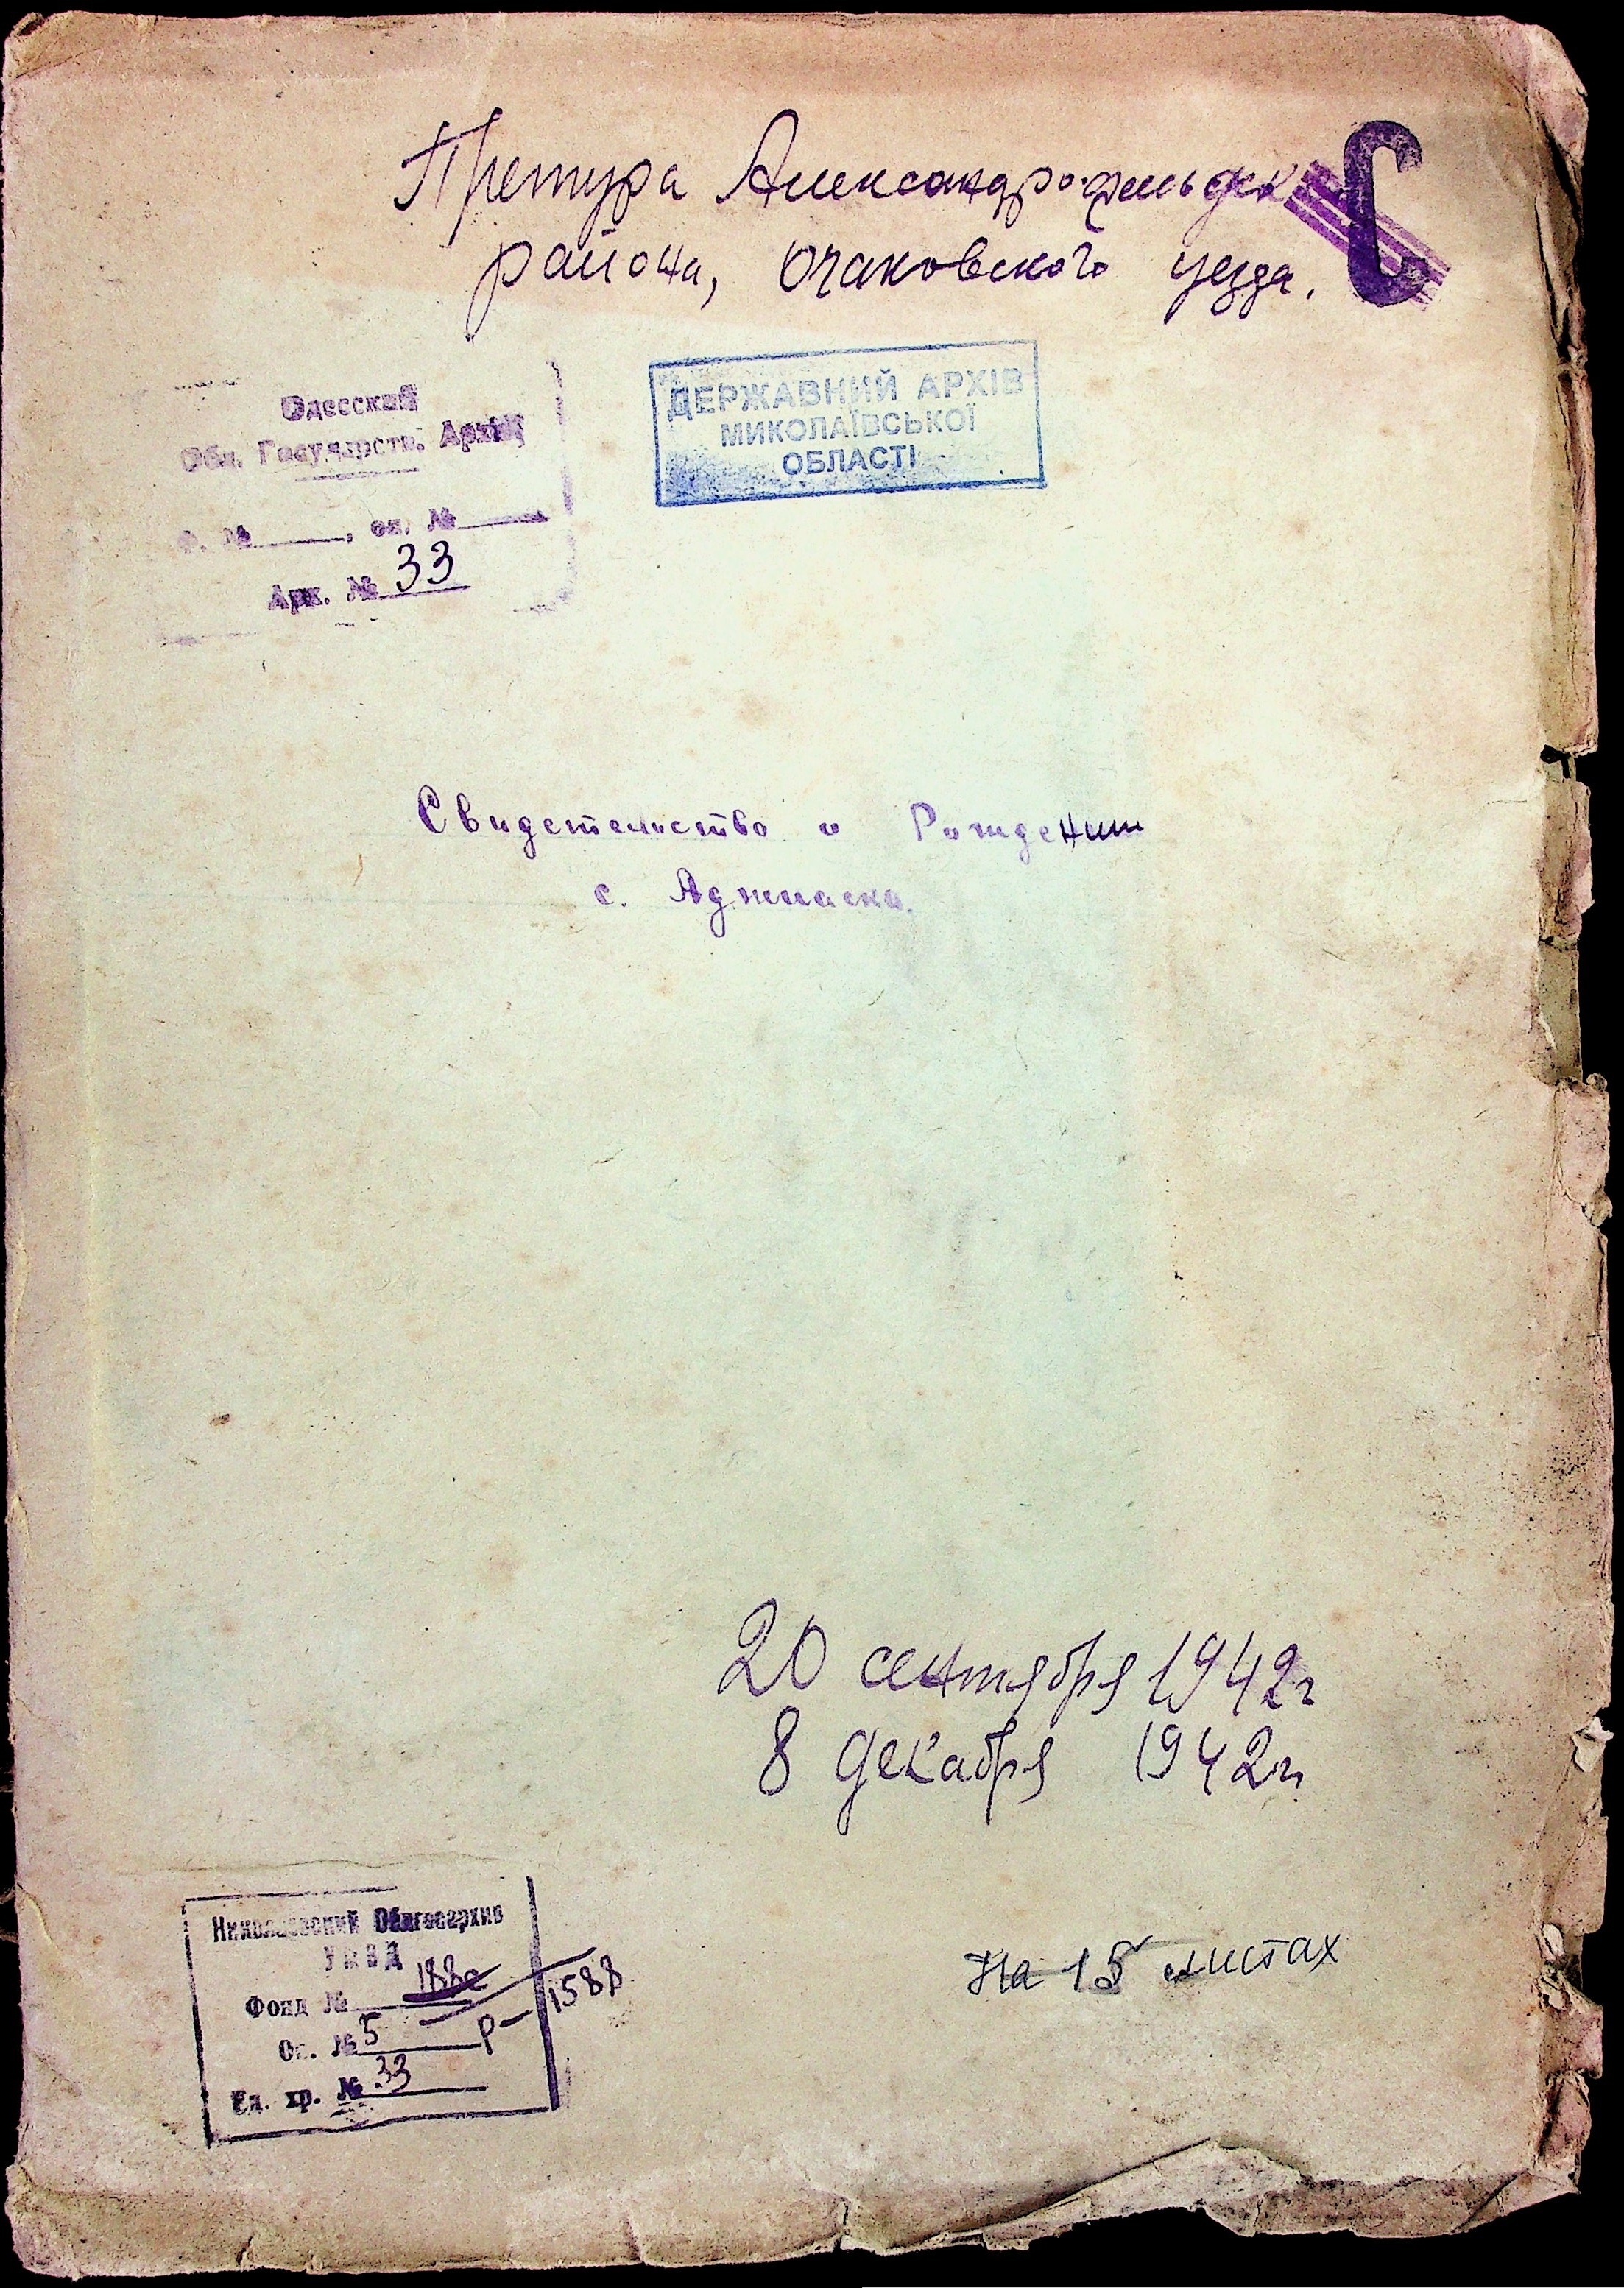 Претура Александрофельдск
района, Очаковского уезда.
С
Одесский
Обл. Государств. Архив
Ф. № , оп. №
Арх. № 33
ДЕРЖАВНИЙ АРХІВ
МИКОЛАЇВСЬКОЇ
ОБЛАСТІ
Свидетельство о Рождении
с. Аджиаска.
20 сентября 1942г
8 декабря 1942г
Николаевский Облгосархив
УНВД
Фонд № Р-1588
Оп. № 5
Ед. хр. № 33
На 15 листах